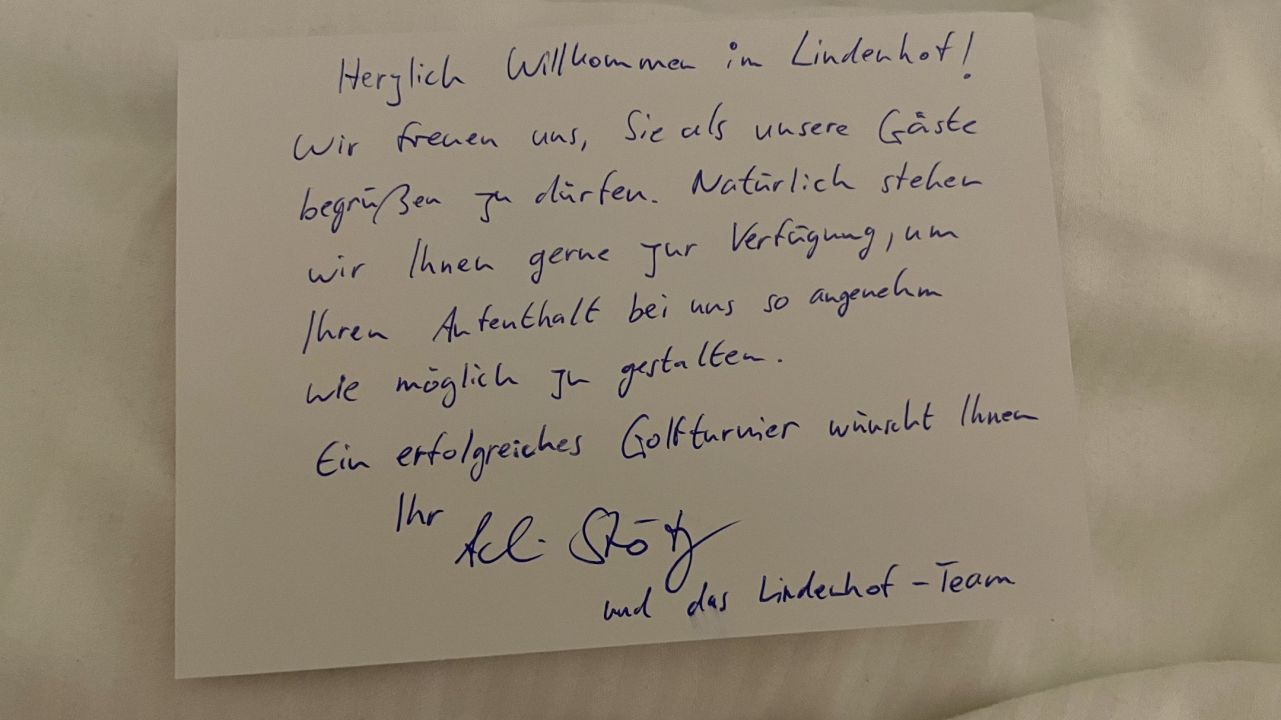 Herzlich Willkommen im Lindenhof!
Wir freuen uns, Sie als unsere Gäste
begrüßen zu dürfen. Natürlich stehen
wir Ihnen gerne zur Verfügung, um
Ihren Aufenthalt bei uns so angenehm
wie möglich zu gestalten.
Ein erfolgreiches Golfturnier wünscht Ihnen
Ihr
und das Lindenhof-Team